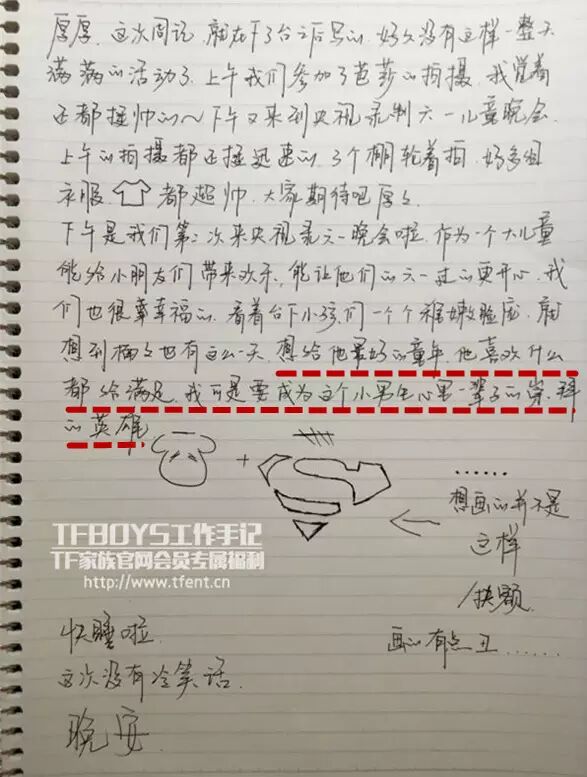 厚厚.这次周记.就在下了台之后写的.好久没有这样一整天
满满的活动了.上午我们参加了芭莎的拍摄.我觉着
还都挺帅的~下午又来到央视录制六一儿童晚会.
上午的拍摄都还挺迅速的.3个棚轮着拍.好多组
衣服. 都超帅.大家期待吧厚厚.
下午是我们第二次来央视录六一晚会啦.作为一个大儿童
能给小朋友们带来欢乐.能让他们的六一过的更开心.我
们也很幸幸福的.看着台下小孩们一个个稚嫩脸庞.就
想到楠楠也有这么一天.想给他最好的童年.他喜欢什么
都给满足.我可是要成为这个小男生心里一辈子的崇拜
的英雄
+
S
......
想画的并不是
这样
/捂额.
画的有点丑......
TFBOYS工作手记
TF家族官网会员专属福利
http://www.tfent.cn
快睡啦.
这次没有冷笑话.
晚安.